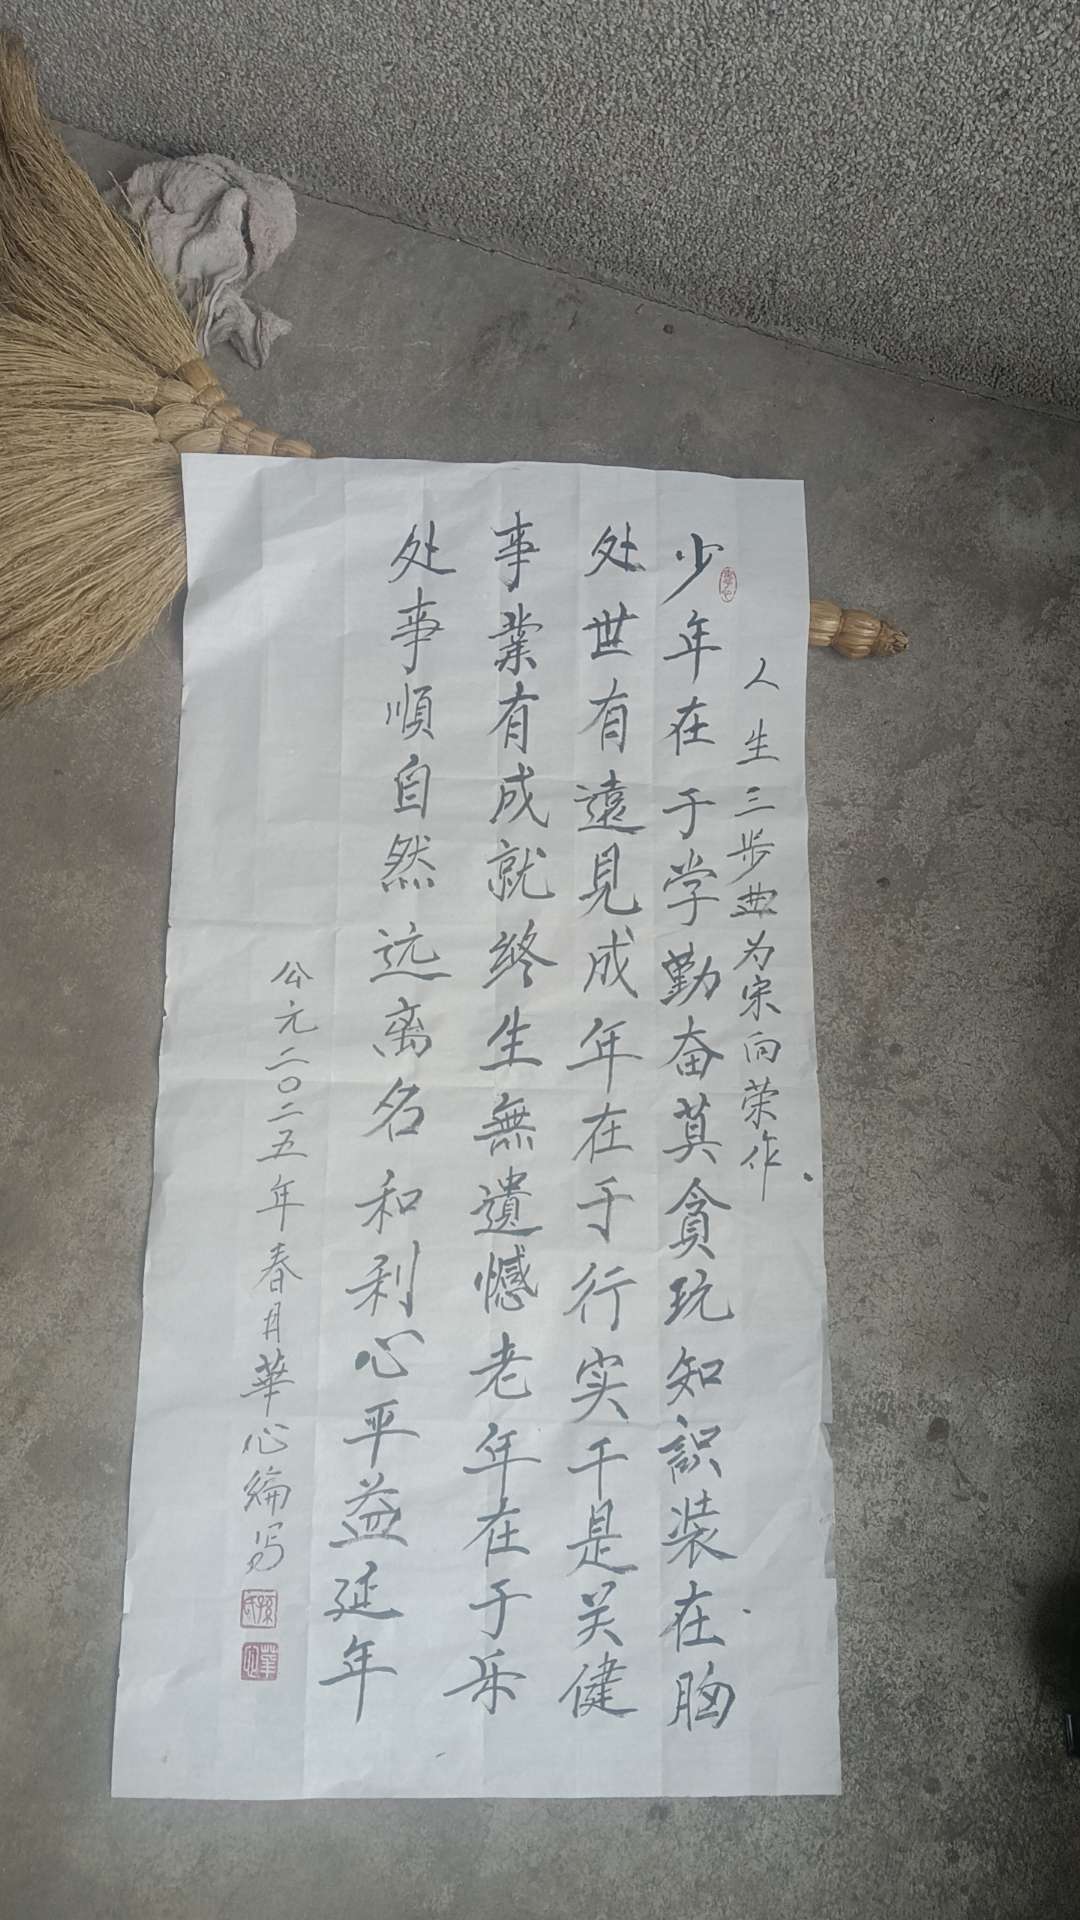 人生三步曲为宋向荣作
少年在于学勤奋莫贪玩知識装在胸
处世有遠見成年在于行实干是关健
事業有成就终生無遺憾老年在于乐
处事順自然远离名和利心平益延年
公元二〇二五年春月華心编写
孫氏
華心